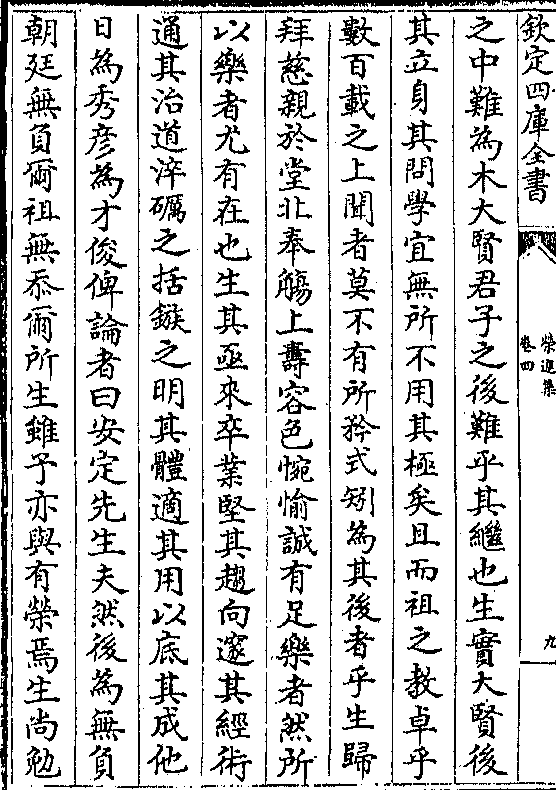 欽定四庫全書
榮進集
卷四
九
之中難為木大賢君子之後難乎其繼也生實大賢後
其立身其問學宜無所不用其極矣且而祖之教卓乎
數百載之上聞者莫不有所矜式矧為其後者乎生歸
拜慈親於堂北奉觴上壽容色惋愉誠有足樂者然所
以樂者尤有在也生其亟來卒業堅其趨向邃其經術
通其治道淬礪之括鏃之明其體適其用以底其成他
日為秀彥為才俊俾論者曰安定先生夫然後為無負
朝廷無負爾祖無忝爾所生雖予亦與有榮焉生尚勉